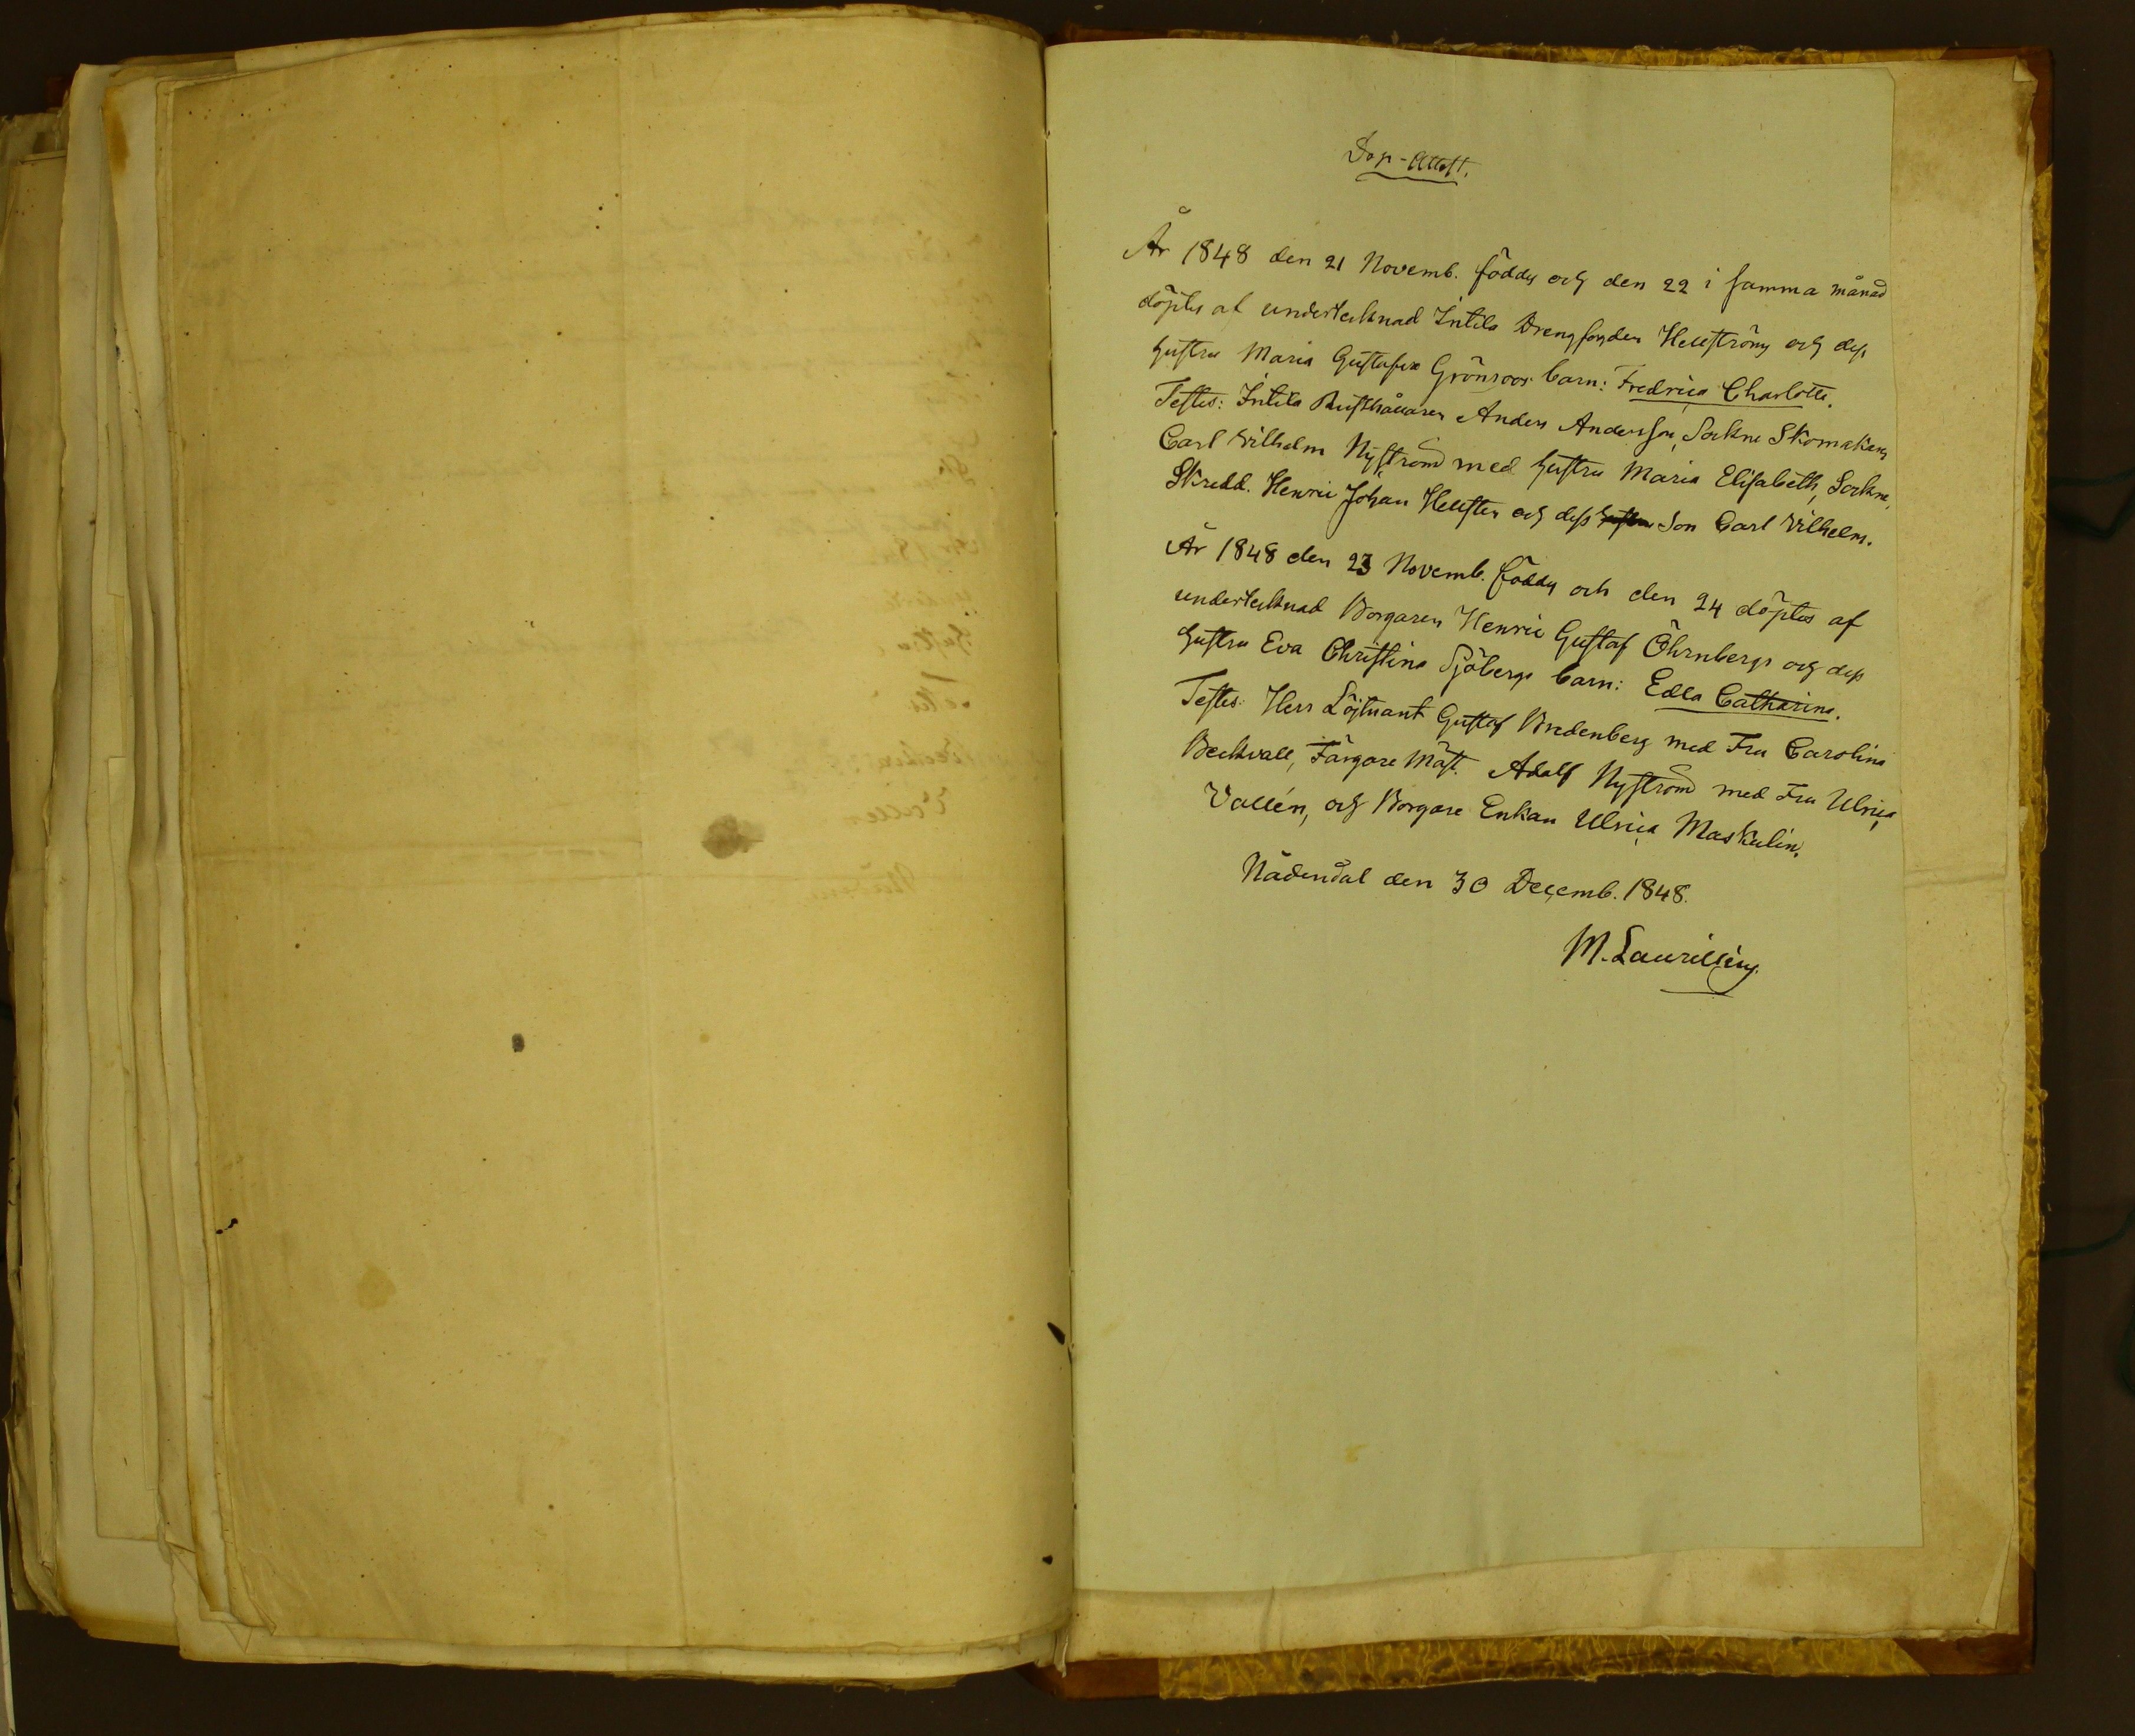 Dop-Attest.
År 1848 den 21 Novemb. föddes och den 22 i samma månad
döptes af undertecknad Intila Drengfogden Hellströms och dess
hustru Maria Gustafva Grönroos barn: Fredrica Charlotta.
Testes: Intila Rusthållaren Anders Andersson, Sockne Skomakaren
Carl Vilhelm Nyström med hustru Maria Elisabeth, Sockne
Skredd. Henric Johan Hellsten och dess hustru Son Carl Vilhelm.
År 1848 den 23 Novemb. föddes och den 24 döptes af
undertecknad Borgaren Henric Gustaf Öhrnbergs och dess
hustru Eva Christina Sjöbergs barn: Edla Catharina.
Testes: Herr Löjtnant Gustaf Bredenberg med Fru Carolina
Beckvall, Färgare Mäst. Adolf Nyström med Fru Ulrica
Vallén, och Borgare Enkan Ulrica Maskulin.
Nådendal den 30 Decemb. 1848.
M. Laurillius.